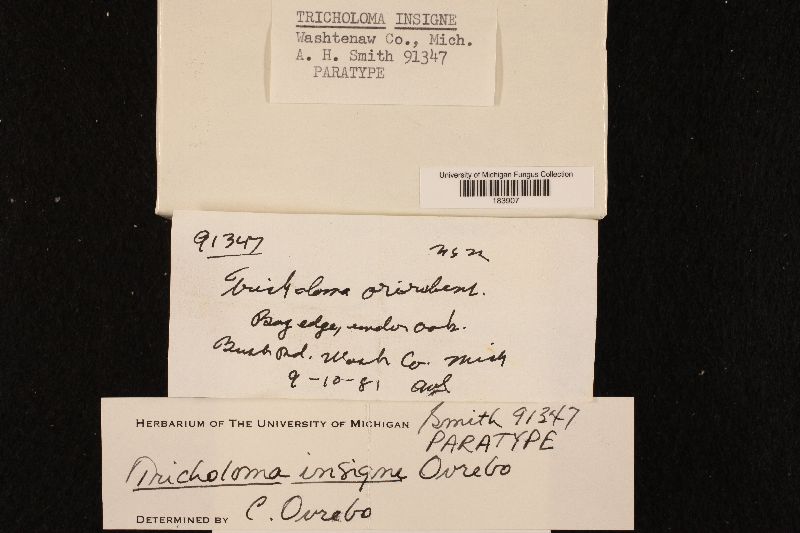 TRICHOLOMA INSIGNE
Washtenaw Co., Mich.
A. H. Smith 91347
PARATYPE
University of Michigan Fungus Collection
183907
91347
Tricholoma orirubens.
Bog edge, under oak.
Bush Rd. Wash Co. Mich
9-10-81 AHS
HERBARIUM OF THE UNIVERSITY OF MICHIGAN Smith 91347
PARATYPE
Tricholoma insigne Ovrebo
DETERMINED BY C. Ovrebo